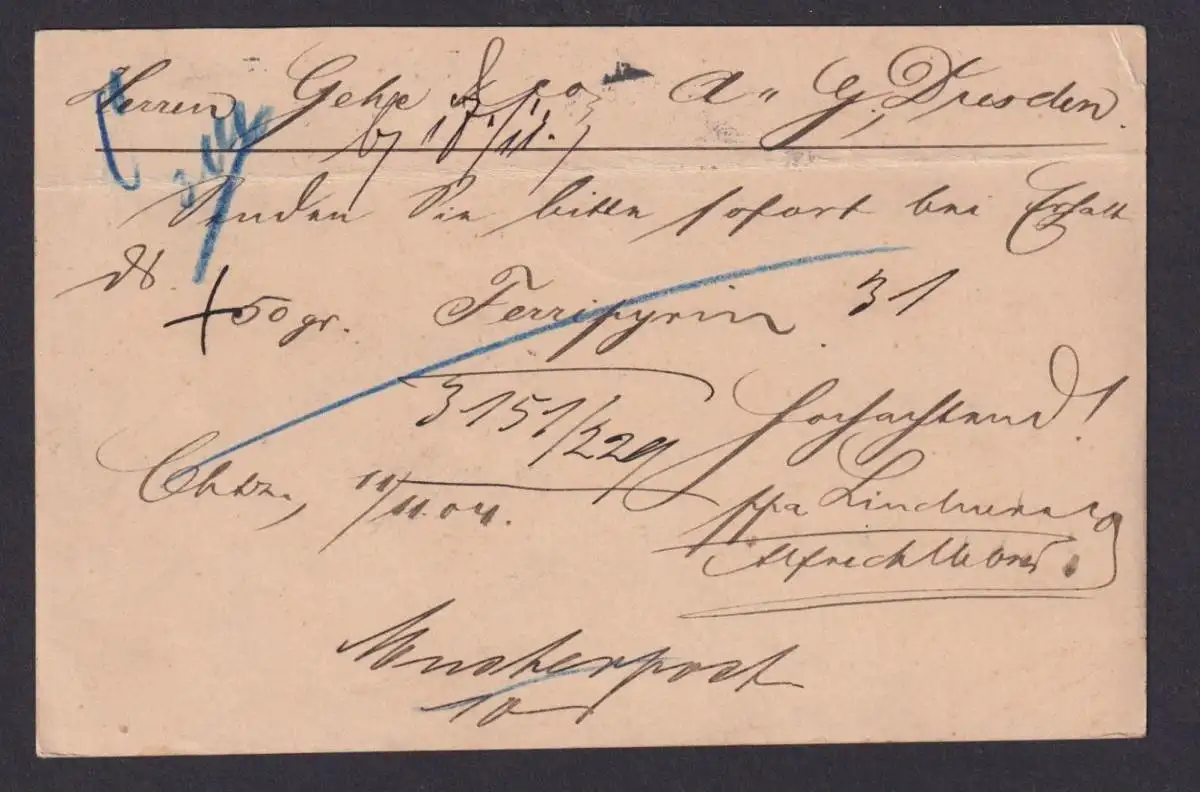 Herren Gehe & Co A.. G, Dresden.
Senden Sie bitte sofort bei Erhalt
ds.
50 gr. Ferripyrin 31
3151/229
Hochachtend!
Chtz., 11/11.04.
ppa
Alfred
Musterpost
10